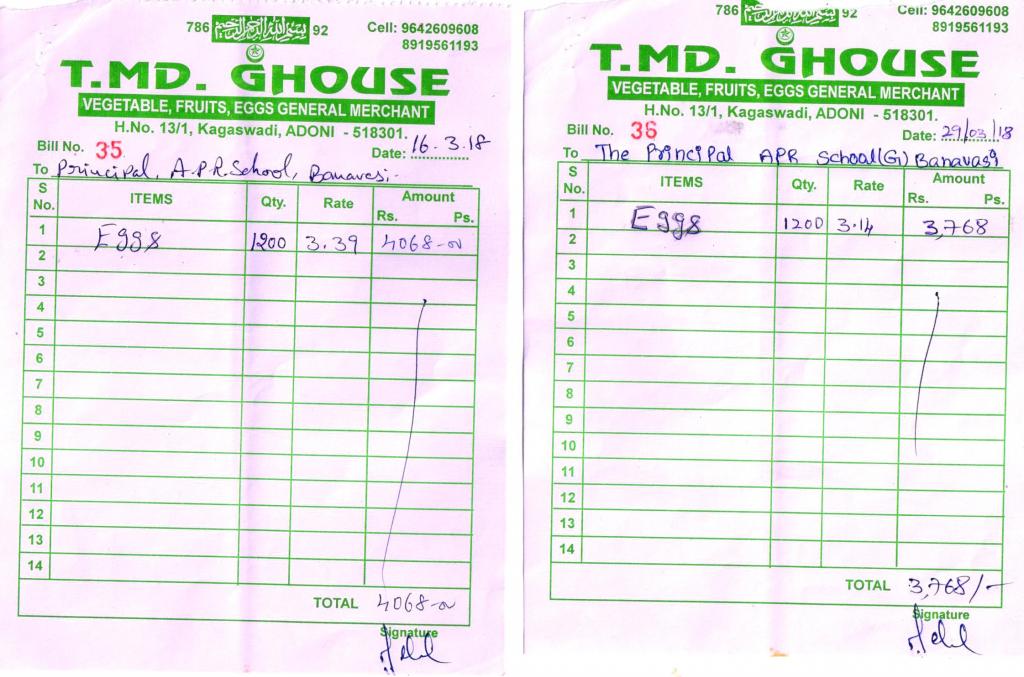 786 بسم الله الرحمن الرحيم 92
Cell: 9642609608
8919561193
T.MD. GHOUSE
VEGETABLE, FRUITS, EGGS GENERAL MERCHANT
H.No. 13/1, Kagaswadi, ADONI - 518301.
Bill No. 35
Date: 16.3.18
To Principal, A.P.R. School, Banavasi.
S No. ITEMS Qty. Rate Amount Rs. Ps.
1 Eggs 1200 3.39 4068-00
2
3
4
5
6
7
8
9
10
11
12
13
14
TOTAL 4068-00
Signature
786 بسم الله الرحمن الرحيم 92
Cell: 9642609608
8919561193
T.MD. GHOUSE
VEGETABLE, FRUITS, EGGS GENERAL MERCHANT
H.No. 13/1, Kagaswadi, ADONI - 518301.
Bill No. 36
Date: 29/03/18
To The Principal APR School(G) Banavasi
S No. ITEMS Qty. Rate Amount Rs. Ps.
1 Eggs 1200 3.14 3,768
2
3
4
5
6
7
8
9
10
11
12
13
14
TOTAL 3,768/-
Signature